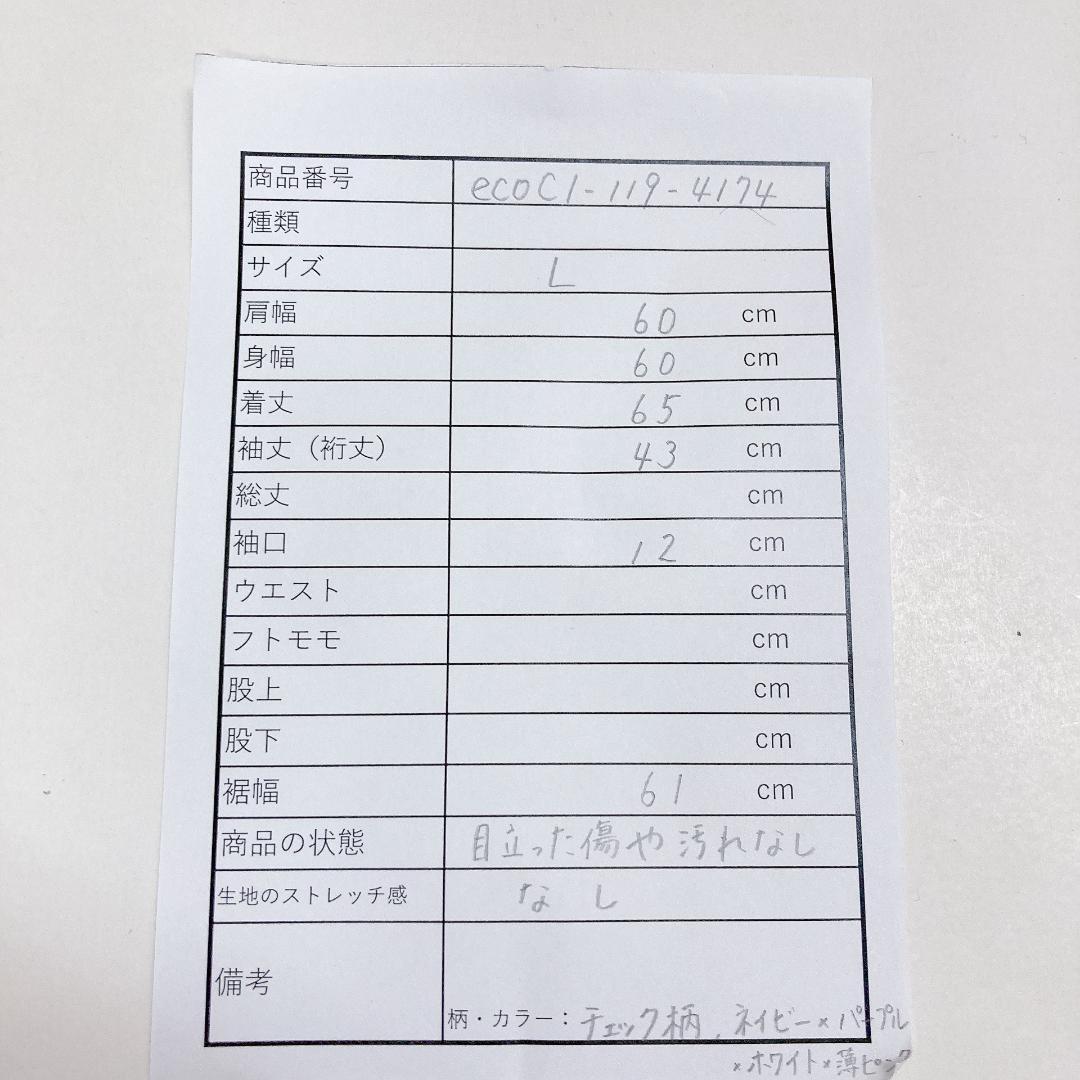 商品番号 ecoC1-119-4174
種類
サイズ L
肩幅 60 cm
身幅 60 cm
着丈 65 cm
袖丈（裄丈） 43 cm
総丈 cm
袖口 12 cm
ウエスト cm
フトモモ cm
股上 cm
股下 cm
裾幅 61 cm
商品の状態 目立った傷や汚れなし
生地のストレッチ感 なし
備考
柄・カラー：チェック柄、ネイビー×パープル
×ホワイト×薄ピンク